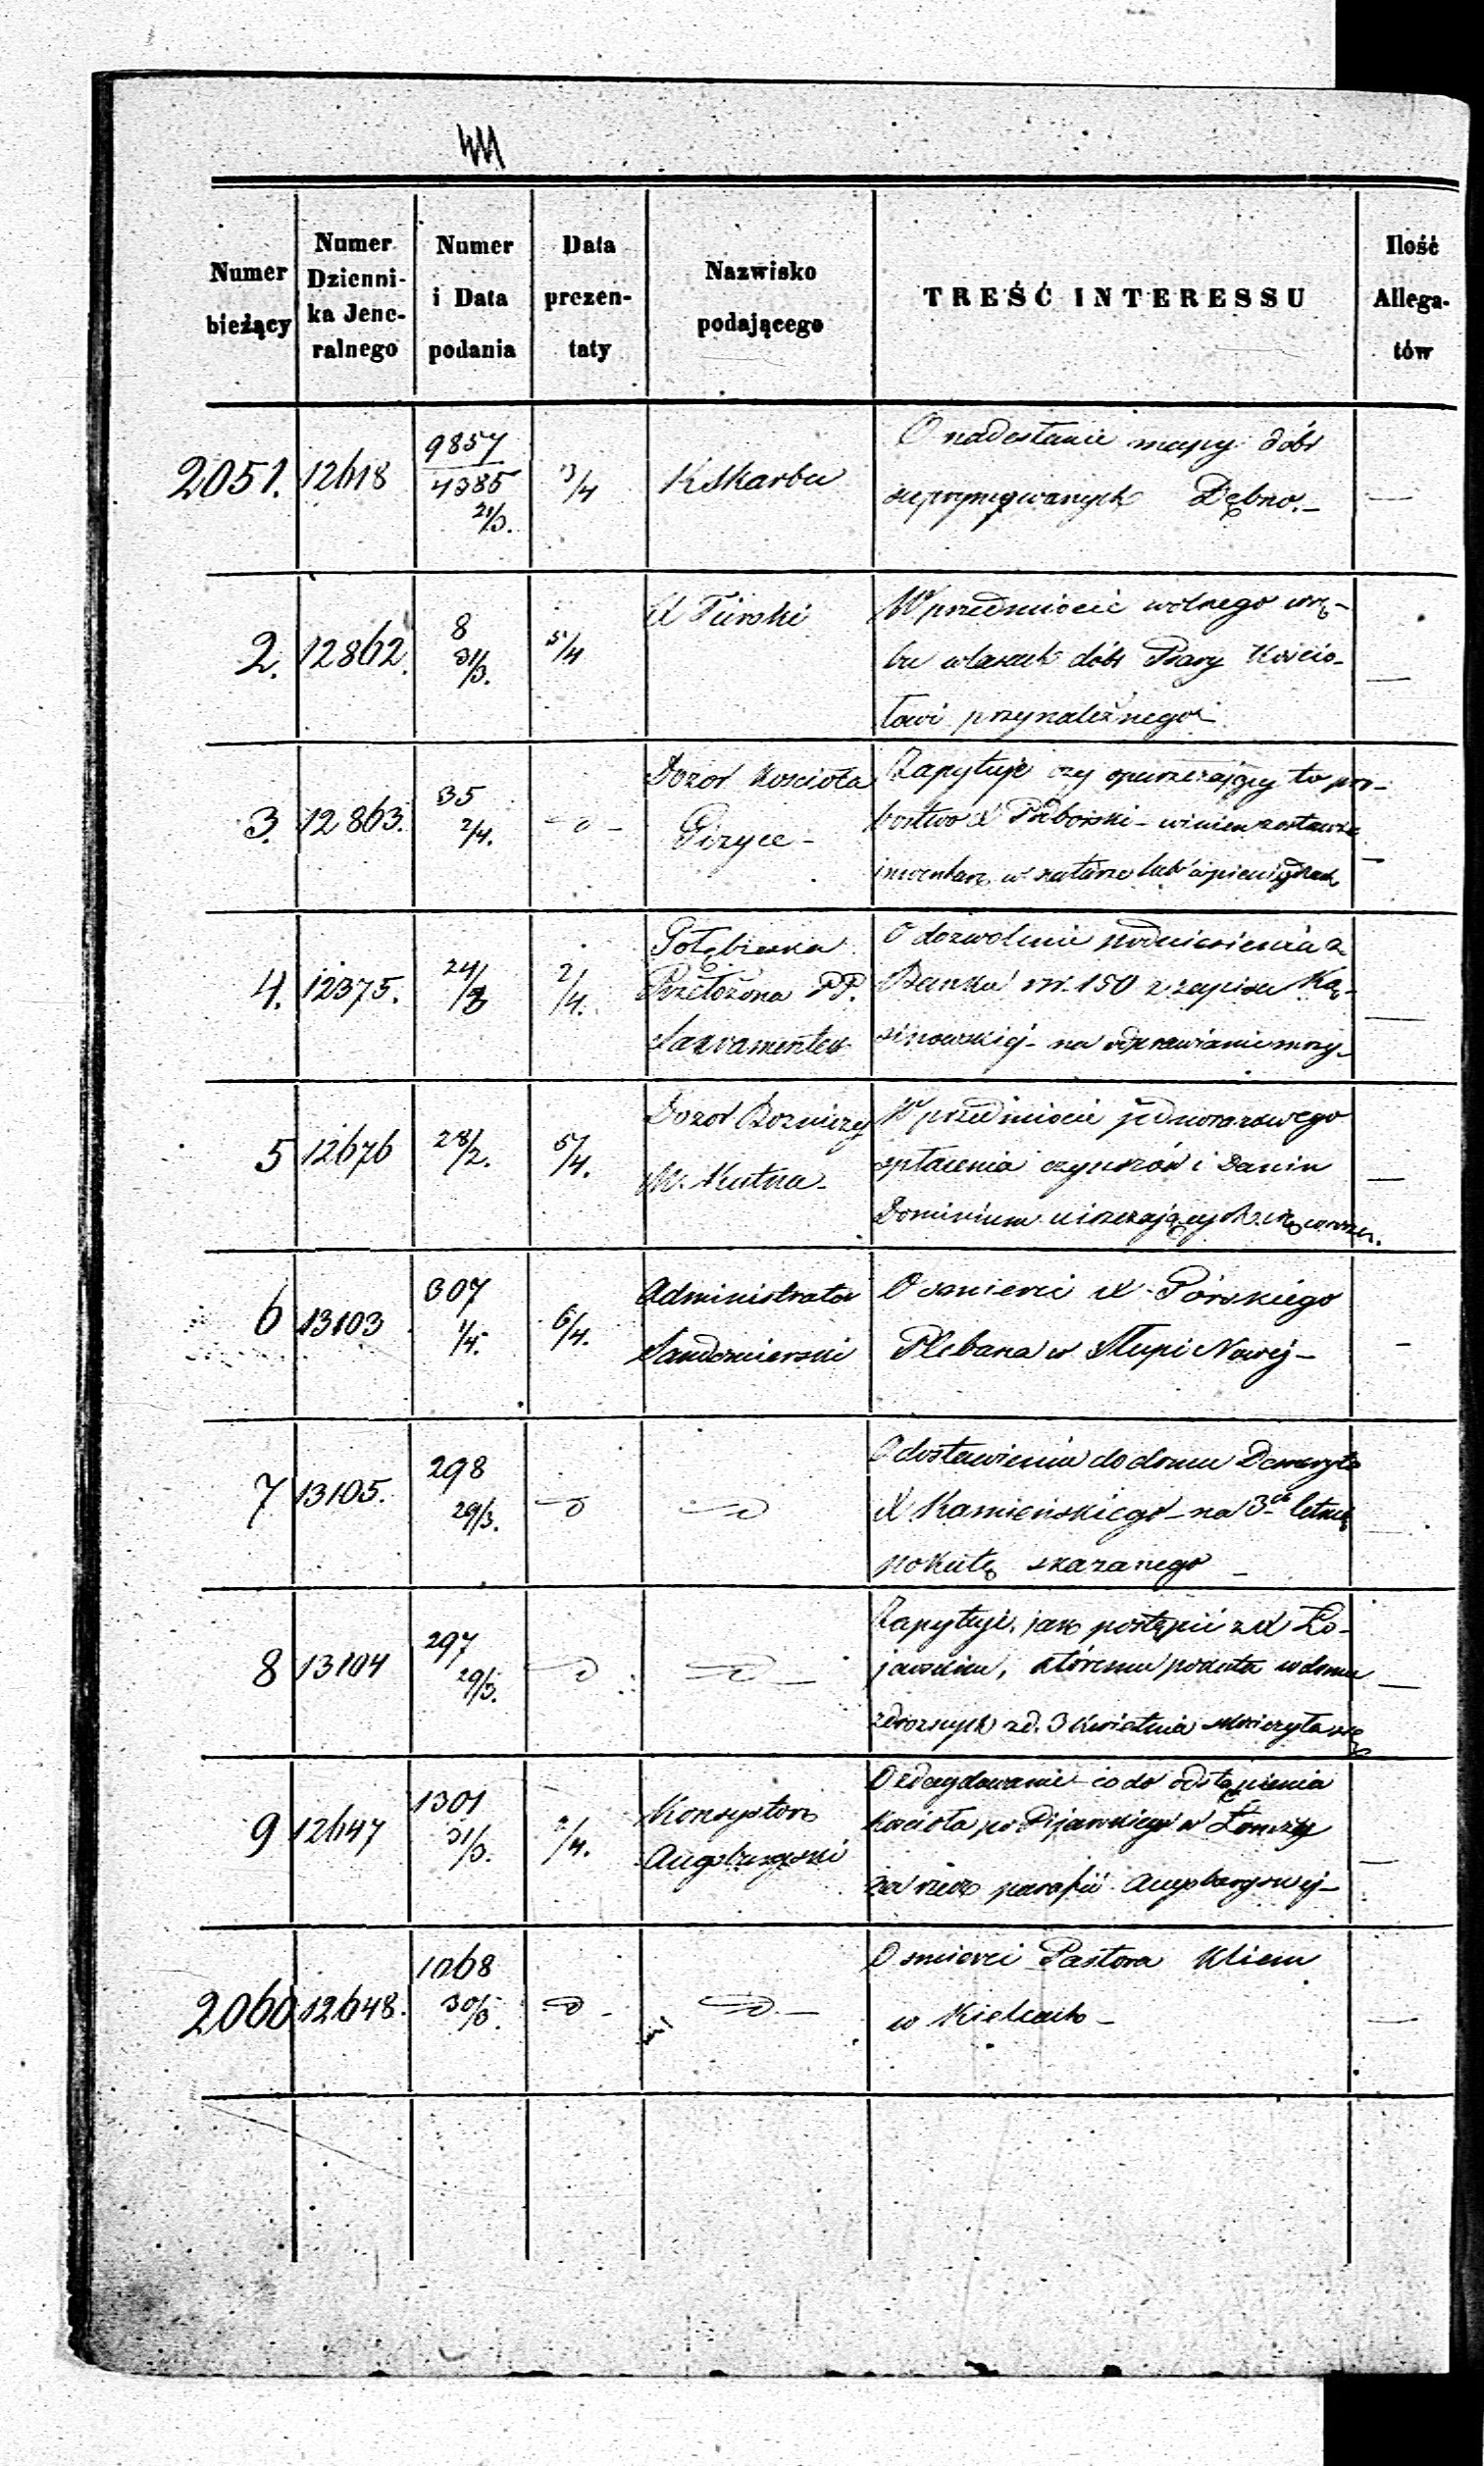 Numer bieżący
Numer Dzienni-
ka Jene-
ralnego
Numer
i Data
podania
Data
prezen-
taty
Nazwisko
podającego
TREŚĆ INTERESSU
Ilość
Allega-
tów
2051. 12618 9857 / 4385 21/3. 3/4 K Skarbu
O nadesłanie mapy dóbr
supprymowanych Dębno. —
2. 12862. 8 31/3. 5/4 X Turski
W przedmiocie wolnego wrę-
bu w lasach dóbr Psary Kościo-
łowi przynależnego
3. 12863. 35 2/4. — d — Dozór Kościoła
Giżyce —
Zapytuje czy opuszczający to pro-
bostwo X Piborski — winien zostawić
inwentarz w naturze lub w pieniądzach
4. 12375. 24/3 2/4. Gołębiewska
Przełożona PP.
Sakramentek
O dozwolenie podniesienia z
Banku rs. 150 z zapisu Ka-
sinowskiej — na odprawianie mszy —
5 12676 28/2. 5/4. Dozór Bożniczy
M. Kutna —
W przedmiocie jednorazowego
spłacenia czynszów i danin
Dominium uiszczających się corocz.
6 13103 307 1/4. 6/4. Administrator
Sandomierski
O śmierci X Górskiego
Plebana w Słupi Nowej —
7 13105. 298 29/3. — d — d
O dostawieniu do domu Demeryto
X Kamieńskiego — na 3ch letnią
pokutę skazanego —
8 13104 297 29/3. — d — d —
Zapytuje, jak postąpić z X Ło-
jewskim, któremu pokuta w domu
zdrożnych z d. 3 Kwietnia skończyła się
9 12647 1301 31/3. 2/4. Konsystorz
Augsburgski
O zdecydowanie co do odstąpienia
Kościoła po Pijarskiego w Łomży
na rzecz parafii Augsburgskiej —
2060 12648. 1268 30/3. — d — — d —
O śmierci Pastora Kliem
w Kielcach —